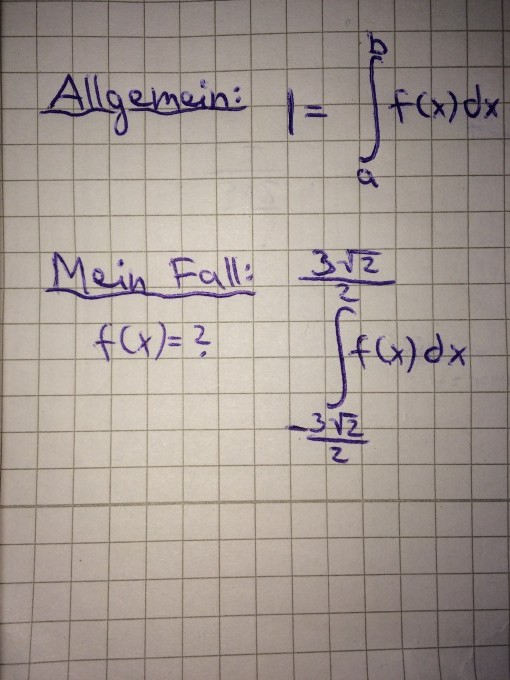 Allgemein: I = ∫_a^b f(x) dx
Mein Fall: ∫_{-3√2/2}^{3√2/2} f(x) dx
f(x) = ?